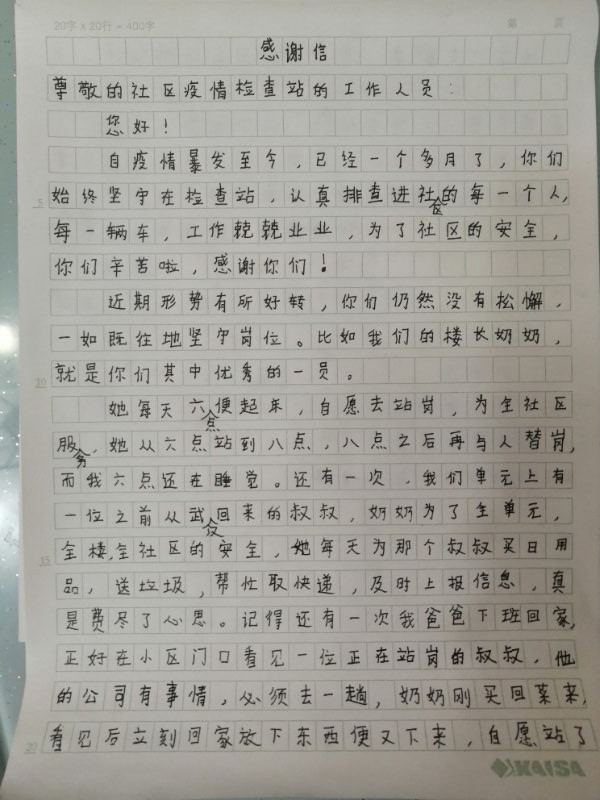 20字 x 20行 = 400字 第 页
感谢信
尊敬的社区疫情检查站的工作人员：
您好！
自疫情暴发至今，已经一个多月了，你们
5 始终坚守在检查站，认真排查进社区的每一个人，
每一辆车，工作兢兢业业，为了社区的安全，
你们辛苦啦，感谢你们！
近期形势有所好转，你们仍然没有松懈，
一如既往地坚守岗位。比如我们的楼长奶奶，
10 就是你们其中优秀的一员。
她每天六点便起来，自愿去站岗，为全社区
服务，她从六点站到八点，八点之后再与人替岗，
而我六点还在睡觉。还有一次，我们单元上有
一位之前从武汉回来的叔叔，奶奶为了全单元，
15 全楼，全社区的安全，她每天为那个叔叔买日用
品，送垃圾，帮忙取快递，及时上报信息，真
是费尽了心思。记得还有一次我爸爸下班回家，
正好在小区门口看见一位正在站岗的叔叔，他
的公司有事情，必须去一趟，奶奶刚买回菜来，
20 看见后立刻回家放下东西便又下来，自愿站了
KAISA